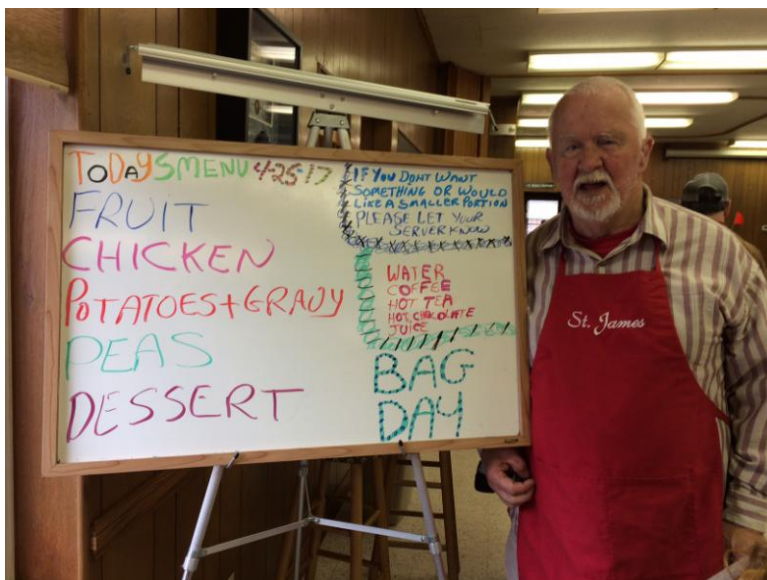 TODAYSMENU 4-25-17
FRUIT
CHICKEN
POTATOES+GRAVY
PEAS
DESSERT
IF YOU DONT WANT
SOMETHING OR WOULD
LIKE A SMALLER PORTION
PLEASE LET YOUR
SERVER KNOW
WATER
COFFEE
HOT TEA
HOT CHOCOLATE
JUICE
BAG
DAY
St. James